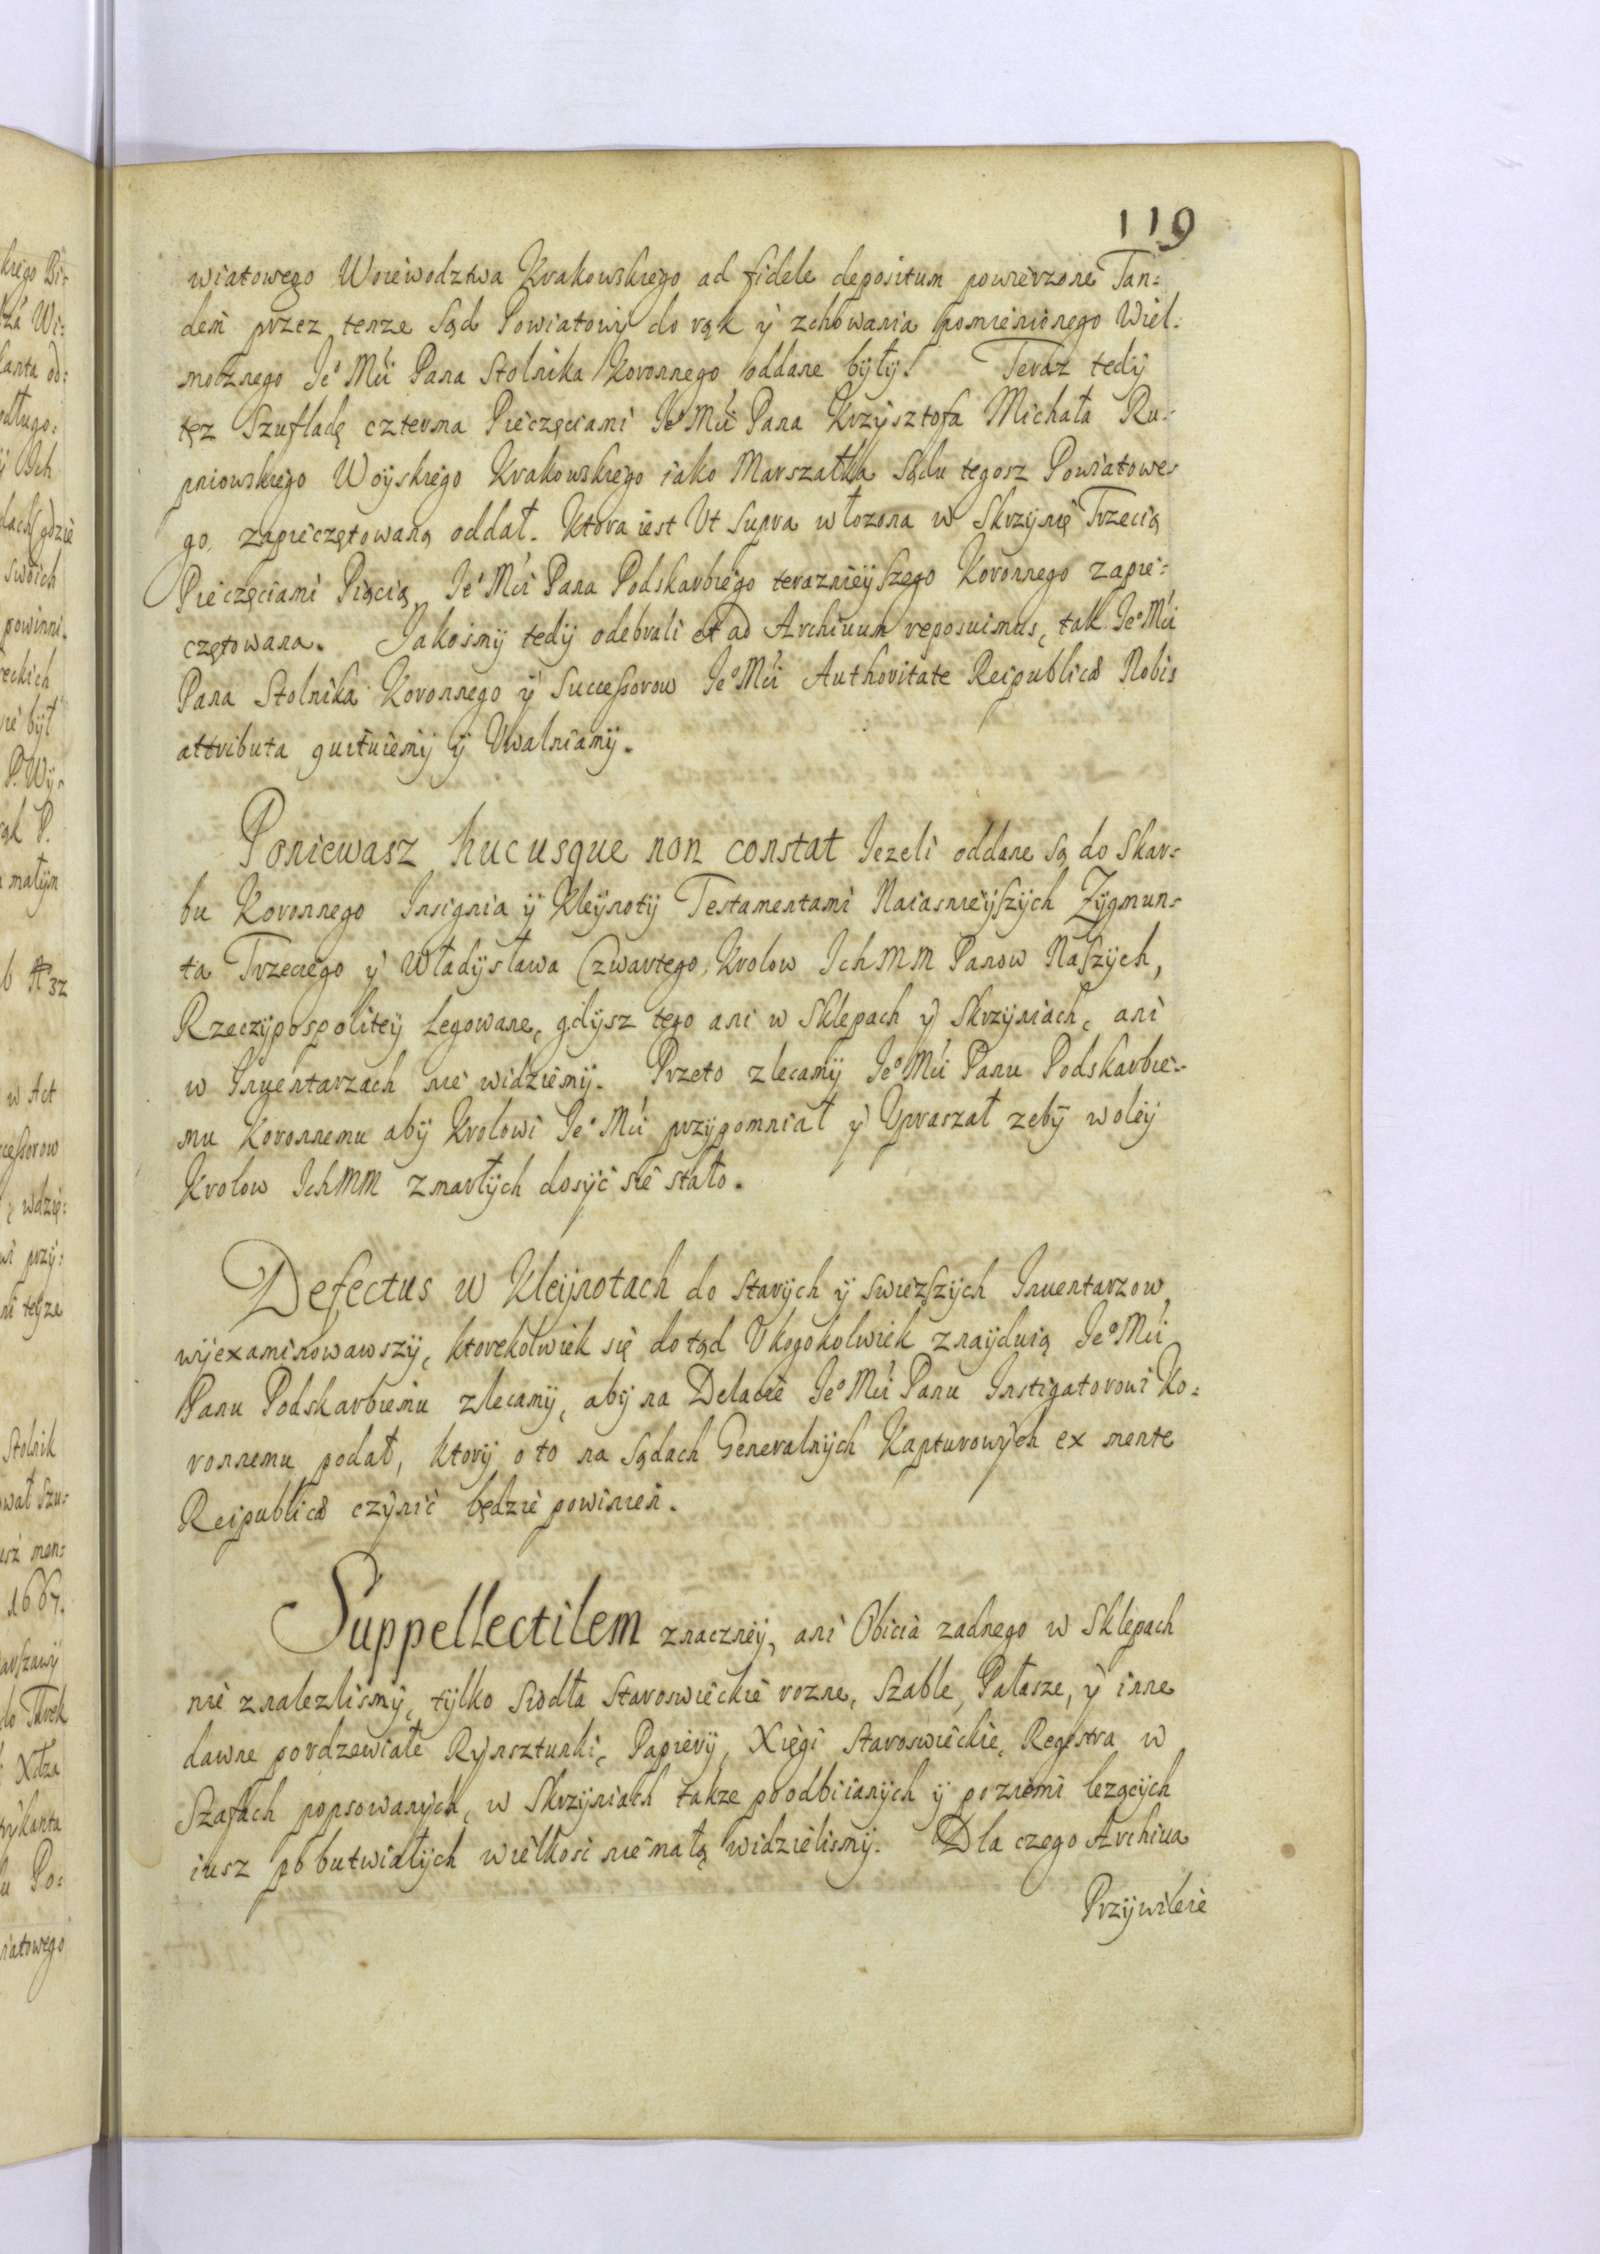 119
wiatowego Woiewodztwa Krakowskiego ad fidele depositum powierzone Tan:
dem przez tenze Sąd Powiatowy do rąk y zchowania pomienionego Wiel:
moznego Je° Mći Pana Stolnika Koronnego oddane były. Teraz tedy
tęz Szufladę czterma Pieczęciami Je° Mći Pana Krzysztofa Michała Ru-
pniowskiego Woyskiego Krakowskiego iako Marszałka Sądu tegosz Powiatowe-
go, zapieczętowaną oddał. Ktora iest Ut Supra włozona w Skrzynię Trzecią
Pieczęciami Pięcią Je° Mći Pana Podskarbiego teraznieyszego Koronnego zapie:
czętowana. Jakosmy tedy odebrali et ad Archiuum reposuimus, tak Je° Mći
Pana Stolnika Koronnego y Successorow Je° Mći Authoritate Reipublicæ Nobis
attributa quituiemy y Uwalniamy.
Poniewasz hucusque non constat Jezeli oddane są do Skar-
bu Koronnego Insignia y Kleynoty Testamentami Naiasnieyszych Zygmun-
ta Trzeciego y Władysława Czwartego, Krolow Ich MM Panow Naszych,
Rzeczypospolitey Legowane, gdysz tego ani w Sklepach y Skrzyniach, ani
w Inuentarzach nie widziemy. Przeto zlecamy Je° Mći Panu Podskarbie-
mu Koronnemu aby Krolowi Je° Mći przypomniał y Upraszał zeby woley
Krolow Ich MM zmarłych dosyć się stało.
Defectus w Kleynotach do starych y swiezszych Inuentarzow,
wyexaminowawszy, ktorekolwiek się dotąd U kogokolwiek znayduią Je° Mći
Panu Podskarbiemu zlecamy, aby na Delacie Je° Mći Panu Instigatorowi Ko:
ronnemu podał, ktory o to na Sądach Generalnych Kapturowych ex mente
Reipublicæ czynić będzie powinien.
Suppellectilem znaczney, ani Obicia zadnego w Sklepach
nie znalezlismy, tylko Siodła Staroswieckie rozne, Szable, Pałasze, y inne
dawne pordzewiałe Rynsztunki, Papiery, Xięgi Staroswieckie, Regestra w
Szafach popsowanych, w Skrzyniach takze poodbiianych y po ziemi lezących
iusz pobutwiałych wielkosc niemałą widzielismy. Dla czego Archiua
Przywileie